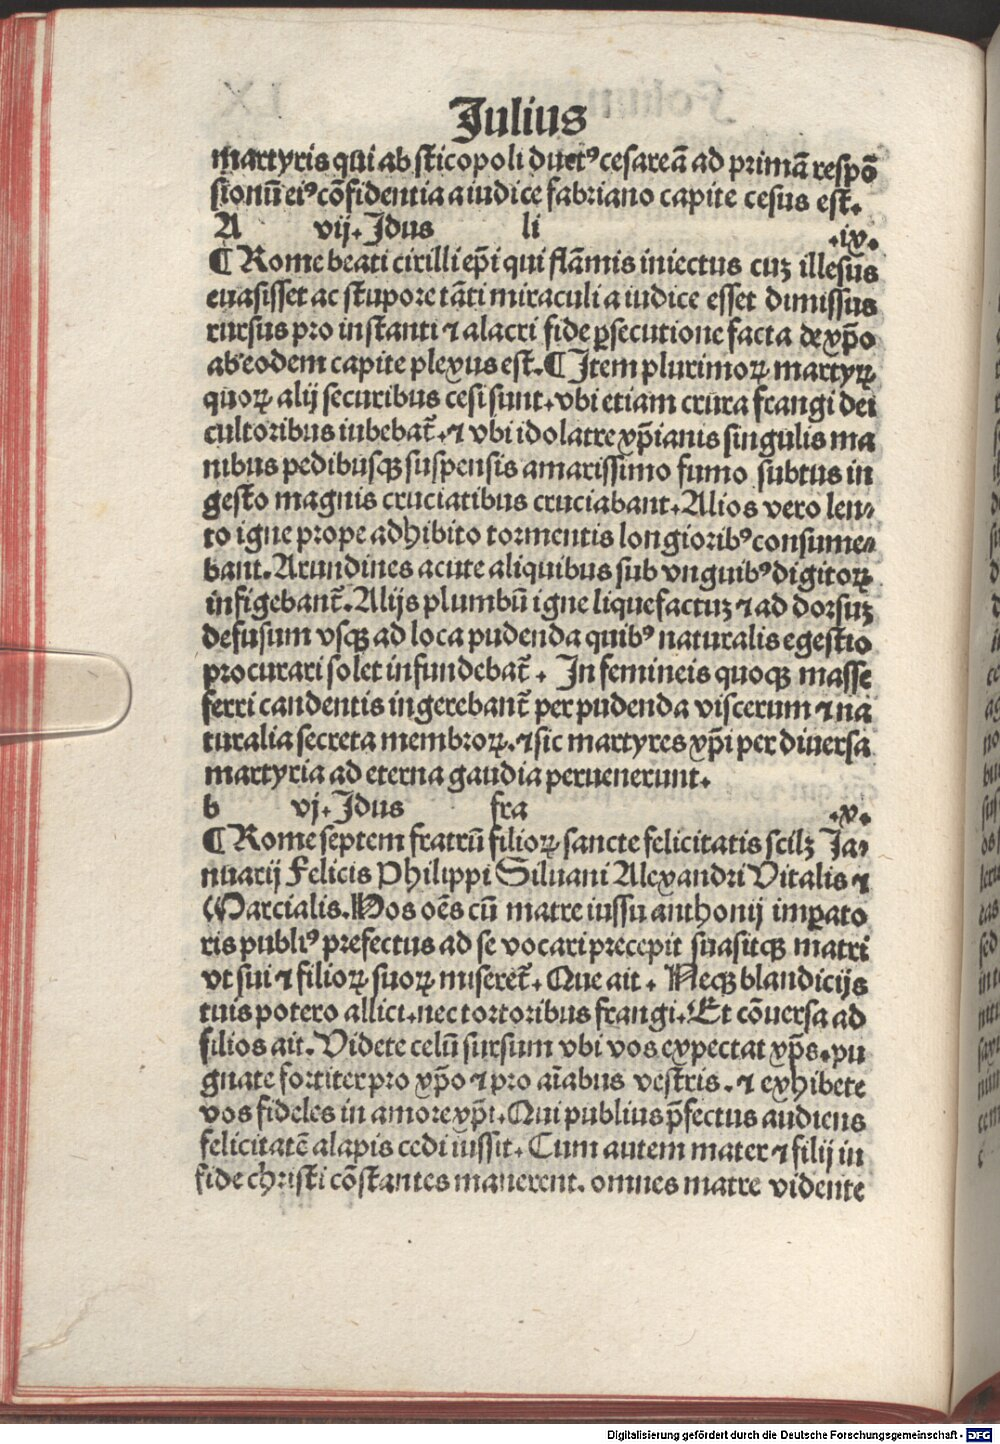 Julius
martyris qui ab sticopoli duct⁹ cesareā ad primā respō
sionū ei⁹ cōfidentia a iudice fabriano capite cesus est.
A vij. Idus li .ix.
¶ Rome beati cirilli ep̄i qui flāmis iniectus cuʒ illesus
euasisset ac stupore tāti miraculi a iudice esset dimissus
rursus pro instanti ⁊ alacri fide ꝑsecutione facta de xp̄o
ab eodem capite plexus est. ¶ Item plurimoꝝ martyꝝ
quoꝝ alij securibus cesi sunt. vbi etiam crura frangi dei
cultoribus iubebat̄. ⁊ vbi idolatre xp̄ianis singulis ma
nibus pedibusqꝫ suspensis amarissimo fumo subtus in
gesto magnis cruciatibus cruciabant. Alios vero len⸗
to igne prope adhibito tormentis longiorib⁹ consume⸗
bant. Arundines acute aliquibus sub vnguib⁹ digitoꝝ
infigebant̄. Alijs plumbū igne liquefactuʒ ⁊ ad dorsuʒ
defusum vsqꝫ ad loca pudenda quib⁹ naturalis egestio
procurari solet infundebat̄. In femineis quoqꝫ masse
ferri candentis ingerebant̄ per pudenda viscerum ⁊ na
turalia secreta membroꝝ. ⁊ sic martyres xp̄i per diuersa
martyria ad eterna gaudia peruenerunt.
b vj. Idus fra .x.
¶ Rome septem fratrū filioꝝ sancte felicitatis scilꝫ Ja⸗
nuarij Felicis Philippi Siluani Alexandri Vitalis ⁊
Marcialis. Hos oēs cū matre iussu anthonij imꝑato
ris publi⁹ prefectus ad se vocari precepit suasitqꝫ matri
vt sui ⁊ filioꝝ suoꝝ miseret̄. Que ait. Neqꝫ blandicijs
tuis potero allici. nec tortoribus frangi. Et cōuersa ad
filios ait. Videte celū sursum vbi vos expectat xp̄s. pu
gnate fortiter pro xp̄o ⁊ pro aīabus vestris. ⁊ exhibete
vos fideles in amore xp̄i. Qui publius p̄fectus audiens
felicitatē alapis cedi iussit. Cum autem mater ⁊ filij in
fide christi cōstantes manerent. omnes matre vidente
Digitalisierung gefördert durch die Deutsche Forschungsgemeinschaft - DFG